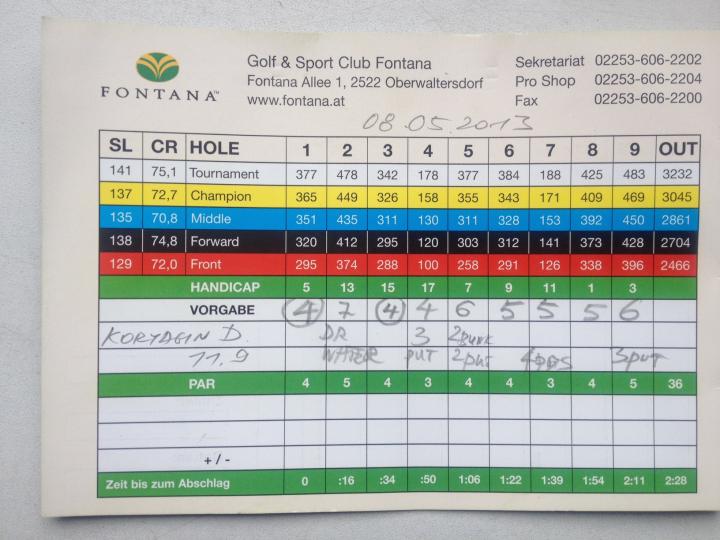 FONTANA™
Golf & Sport Club Fontana
Fontana Allee 1, 2522 Oberwaltersdorf
www.fontana.at
Sekretariat 02253-606-2202
Pro Shop 02253-606-2204
Fax 02253-606-2200
08.05.2013
SL CR HOLE 1 2 3 4 5 6 7 8 9 OUT
141 75,1 Tournament 377 478 342 178 377 384 188 425 483 3232
137 72,7 Champion 365 449 326 158 355 343 171 409 469 3045
135 70,8 Middle 351 435 311 130 311 328 153 392 450 2861
138 74,8 Forward 320 412 295 120 303 312 141 373 428 2704
129 72,0 Front 295 374 288 100 258 291 126 338 396 2466
HANDICAP 5 13 15 17 7 9 11 1 3
VORGABE 4 7 4 4 6 5 5 5 6
KORYAGIN D. DR 3 2 BUNK
11.9 WATER PUT 2 PUT 3 PUT
PAR 4 5 4 3 4 4 3 4 5 36
+ / -
Zeit bis zum Abschlag 0 :16 :34 :50 1:06 1:22 1:39 1:54 2:11 2:28